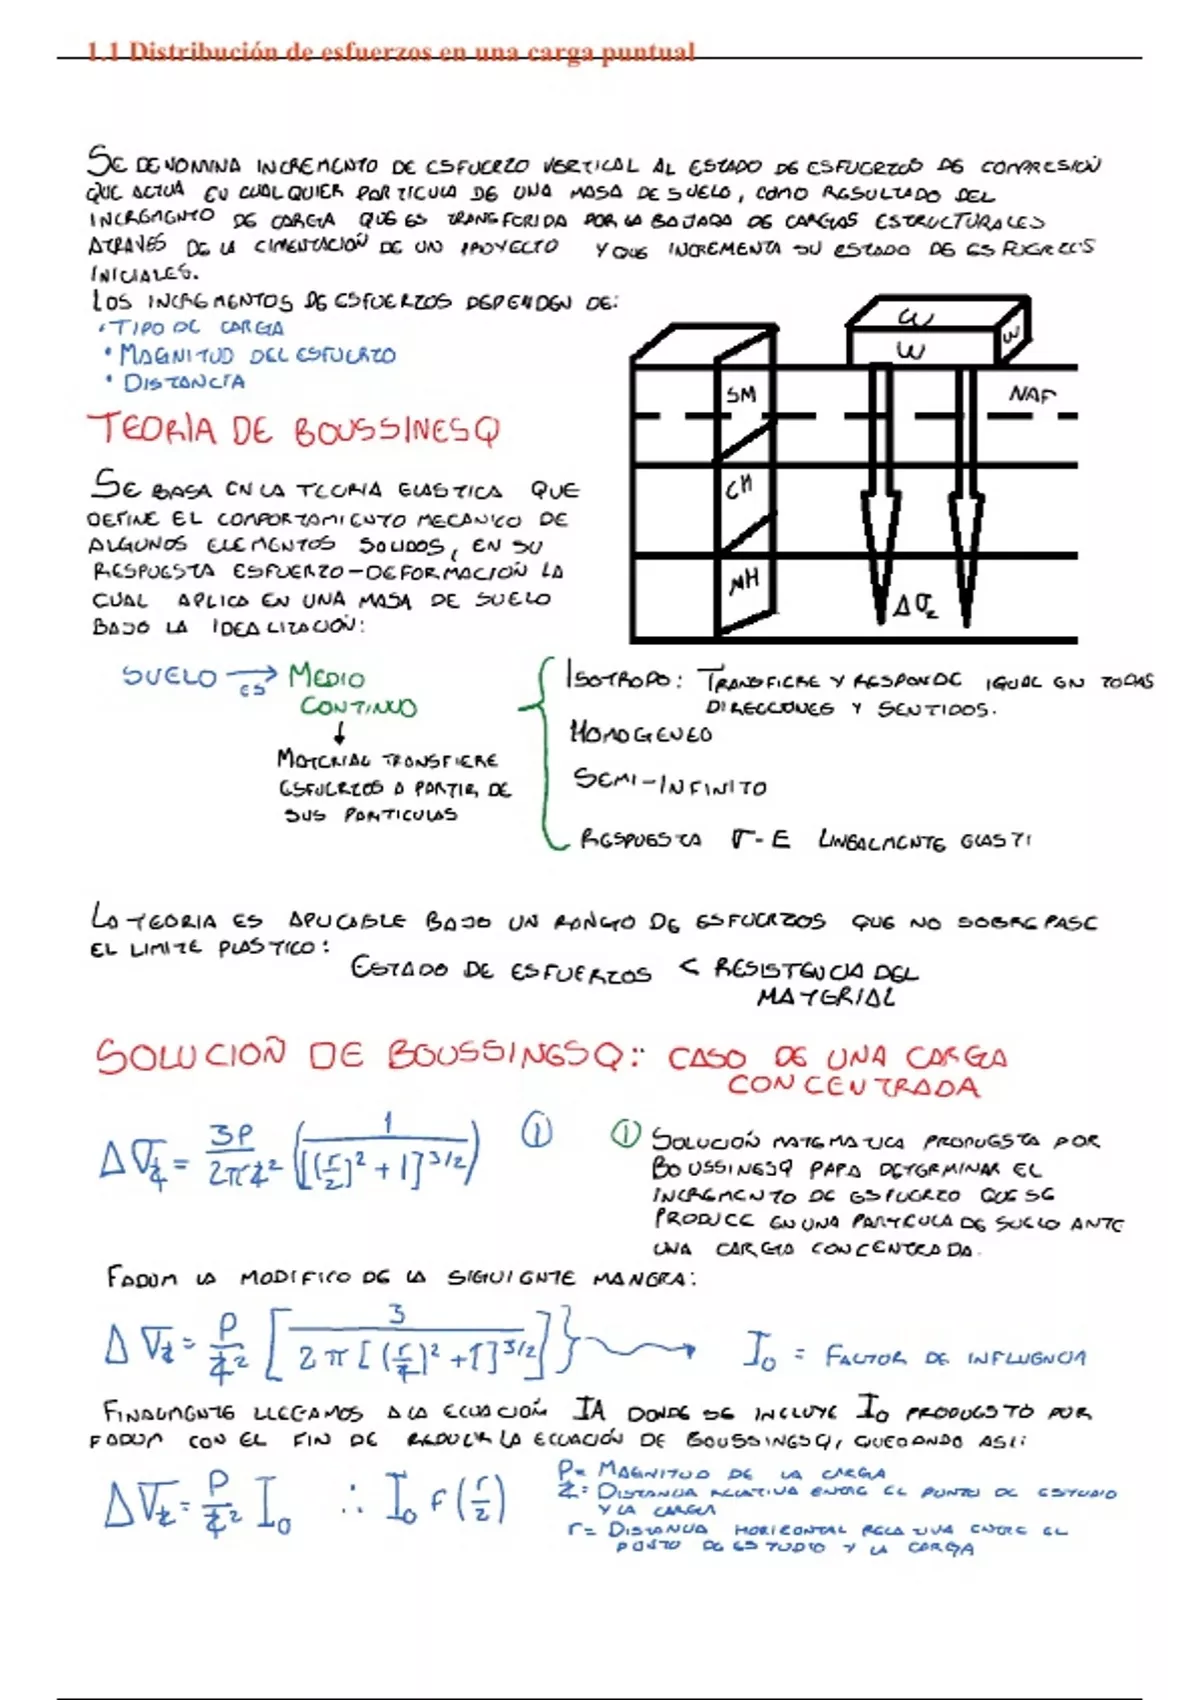 1.1 Distribución de esfuerzos en una carga puntual
SE DENOMINA INCREMENTO DE ESFUERZO VERTICAL AL ESTADO DE ESFUERZOS DE COMPRESIÓN
QUE ACTUA EN CUALQUIER PARTICULA DE UNA MASA DE SUELO, COMO RESULTADO DEL
INCREMENTO DE CARGA QUE ES TRANSFERIDA POR LA BAJADA DE CARGAS ESTRUCTURALES
ATRAVÉS DE LA CIMENTACIÓN DE UN PROYECTO Y QUE INCREMENTA SU ESTADO DE ESFUERZOS
INICIALES.
LOS INCREMENTOS DE ESFUERZOS DEPENDEN DE:
• TIPO DE CARGA
• MAGNITUD DEL ESFUERZO
• DISTANCIA
W
W
W
SM
NAF
CH
MH
Δσz
TEORÍA DE BOUSSINESQ
SE BASA EN LA TEORIA ELASTICA QUE
DEFINE EL COMPORTAMIENTO MECANICO DE
ALGUNOS ELEMENTOS SOLIDOS, EN SU
RESPUESTA ESFUERZO-DEFORMACIÓN LA
CUAL APLICA EN UNA MASA DE SUELO
BAJO LA IDEALIZACIÓN:
SUELO → ES MEDIO
CONTINUO
↓
MATERIAL TRANSFIERE
ESFUERZOS A PARTIR DE
SUS PARTICULAS
ISOTROPO: TRANSFIERE Y RESPONDE IGUAL EN TODAS
DIRECCIONES Y SENTIDOS.
HOMOGENEO
SEMI-INFINITO
RESPUESTA σ-E LINEALMENTE ELASTI
LA TEORIA ES APLICABLE BAJO UN RANGO DE ESFUERZOS QUE NO SOBREPASE
EL LIMITE PLASTICO:
ESTADO DE ESFUERZOS < RESISTENCIA DEL
MATERIAL
SOLUCIÓN DE BOUSSINESQ: CASO DE UNA CARGA
CONCENTRADA
Δσz = 3P/2πz² (1/[(r/z)² + 1]^3/2) ①
① SOLUCIÓN MATEMATICA PROPUESTA POR
BOUSSINESQ PARA DETERMINAR EL
INCREMENTO DE ESFUERZO QUE SE
PRODUCE EN UNA PARTICULA DE SUELO ANTE
UNA CARGA CONCENTRADA.
FADUM LA MODIFICO DE LA SIGUIENTE MANERA:
Δσz = P/z² [3/2π[(r/z)² + 1]^3/2]} → I₀ = FACTOR DE INFLUENCIA
FINALMENTE LLEGAMOS A LA ECUACIÓN IA DONDE SE INCLUYE I₀ PROPUESTO POR
FADUM CON EL FIN DE REDUCIR LA ECUACIÓN DE BOUSSINESQ, QUEDANDO ASI:
Δσz = P/z² I₀ ∴ I₀ F(r/z)
P= MAGNITUD DE LA CARGA
z= DISTANCIA RELATIVA ENTRE EL PUNTO DE ESTUDIO
Y LA CARGA
r= DISTANCIA HORIZONTAL RELATIVA ENTRE EL
PUNTO DE ESTUDIO Y LA CARGA